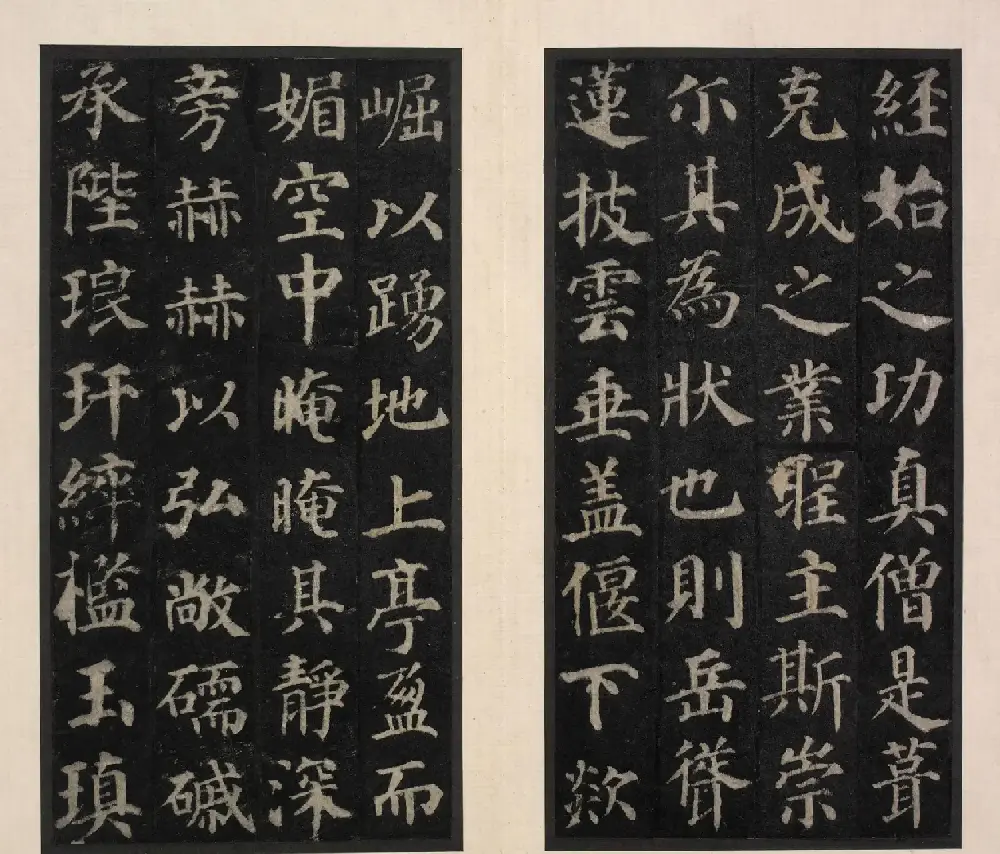 経始之功真僧是葺
克成之業聖主斯崇
尓其為狀也則岳聳
蓮披雲垂盖偃下欻
崛以踴地上亭盈而
媚空中晻晻其靜深
旁赫赫以弘敞礝磩
承陛琅玕綷檻玉瑱